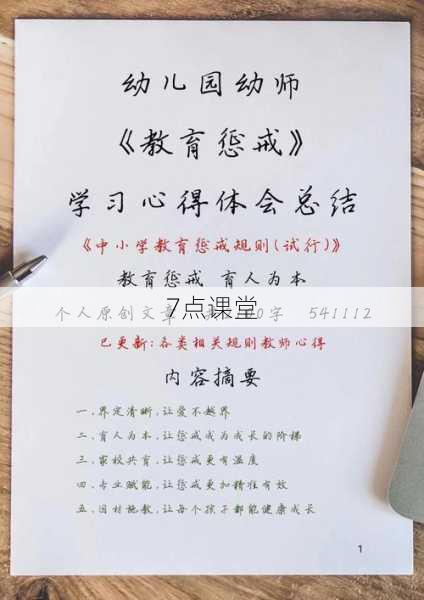 幼儿园幼师
《教育惩戒》
学习心得体会总结
《中小学教育惩戒规则(试行)》
教育惩戒 育人为本
个人原创文章 0字 541112
7点课堂
已更新:各类相关规则教师心得
内容摘要
一.界定清晰,让爱不越界
二.育人为本,让惩戒成为成长的阶梯
三.家校共育,让惩戒更有温度
四.专业赋能,让惩戒更加精准有效
五.因材施教,让每个孩子都能健康成长
1